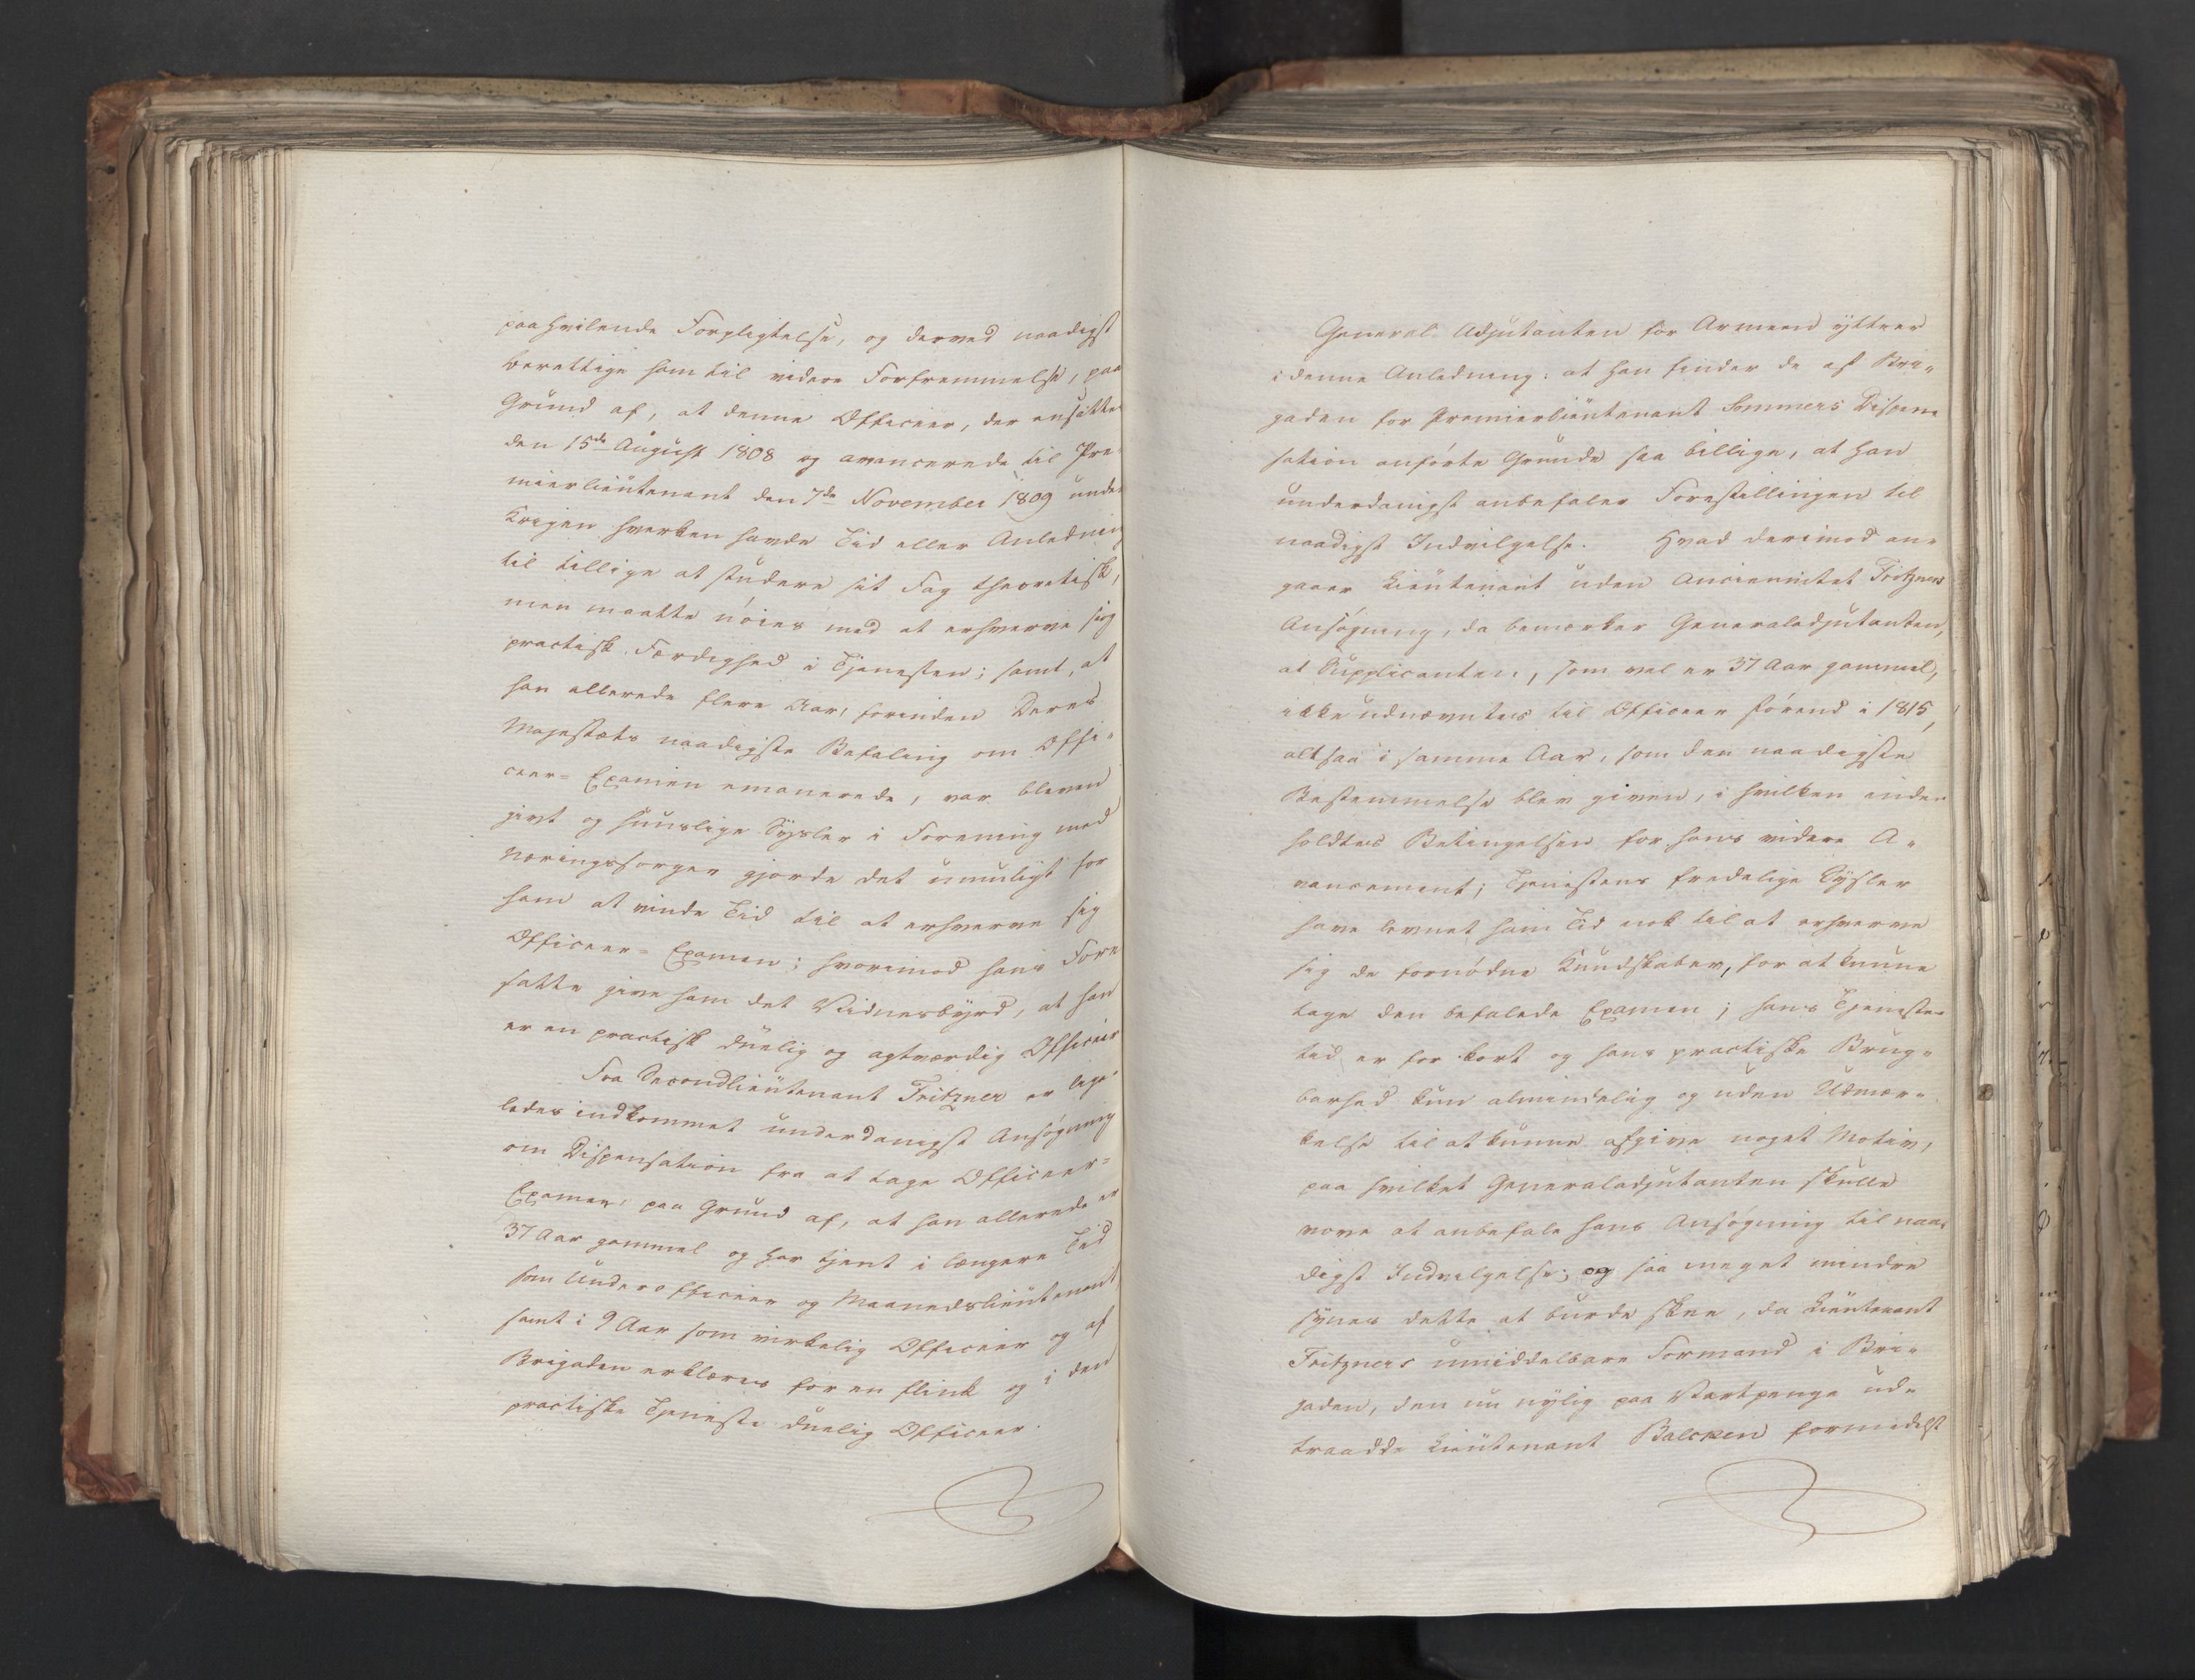 paahvilende Forpligtelse, og derved naadigst
berettige ham til videre Forfremmelse, paa
Grund af, at denne Officeer, der ansattes
den 15de August 1808 og avancerede til Pre-
mierlieutenant den 7de November 1809 under
Krigen hverken havde Tid eller Anledning
til tillige at studere sit Fag theoretisk,
men maatte nöies med at erhverve sig
practisk Færdighed i Tjenesten; samt, at
han allerede flere Aar, forinden Deres
Majestæts naadigste Befaling om Offi-
ceer-Examen emanerede, var bleven
givt og huuslige Sysler i Forening med
Næringssorger gjorde det umuligt for
ham at vinde Tid til at erhverve sig
Officeer-Examen; hvorimod hans Fore
satte give ham det Vidnesbyrd, at han
er en practisk duelig og agtværdig Officeer
Fra Secondlieutenant Fritzner er lige-
ledes indkommet underdanigst Ansøgning
om Dispensation fra at tage Officeer-
Examen, paa Grund af, at han allerede er
37 Aar gammel og har tjent i længere Tid
som Underofficeer og Maanedslieutenant
samt i 9 Aar som virkelig Officeer og af
Brigaden erklæres for en flink og i den
practiske Tjeneste duelig Officeer.
General-Adjutanten for Armeen yttrer
i denne Anledning: at han finder de af Bri-
gaden for Premierlieutenant Sommers Dispen-
sation anförte Grunde saa billige, at han
underdanigst anbefaler Forestillingen til
naadigst Indvilgelse. Hvad derimod an-
gaaer Lieutenant uden Anciennitet Fritzners
Ansögning, da bemærker Generaladjutanten,
at Supplicanten, som vel er 37 Aar gammel,
ikke udnævntes til Officeer förend i 1815,
altsaa i samme Aar, som den naadigste
Bestemmelse blev given, i hvilken inde-
holdtes Betingelsen for hans videre A-
vancement; Tjenestens fredelige Sysler
have levnet ham Tid nok til at erhverve
sig de fornödne Kundskaber, for at kunne
tage den befalede Examen; hans Tjeneste-
tid er for kort og hans practiske Brug-
barhed kun almindelig og uden Udmær-
kelse til at kunne afgive noget Motiv,
paa hvilket Generaladjutanten skulle
vove at anbefale hans Ansögning til naa-
digst Indvilgelse; og saa meget mindre
synes dette at burde skee, da Lieutenant
Fritzners umiddelbare Formand i Bri-
gaden, den nu nylig paa Vartpenge ud-
traadde Lieutenant Balcken formedelst